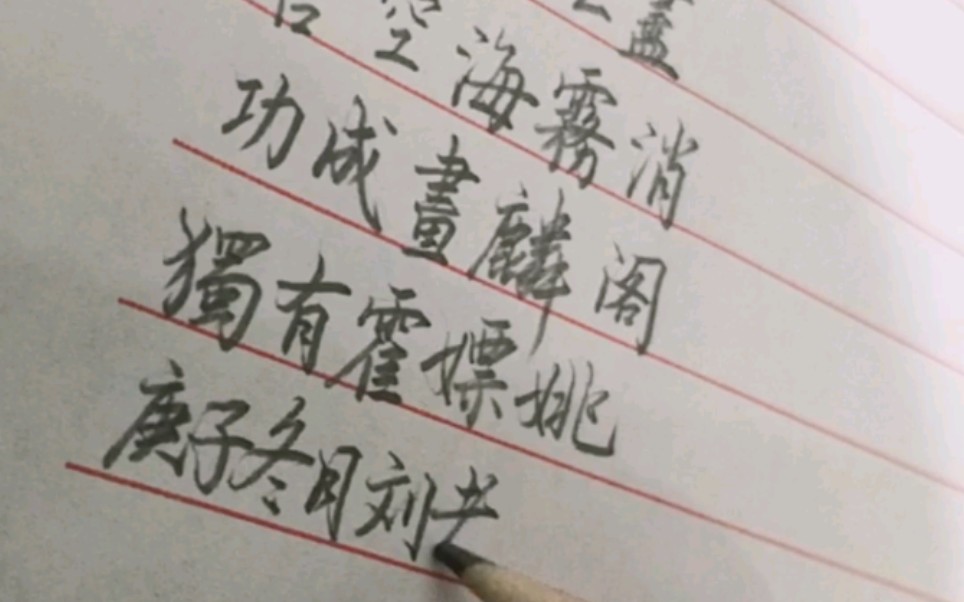 空海霧消
功成畫麟阁
獨有霍嫖姚
庚子冬月刘